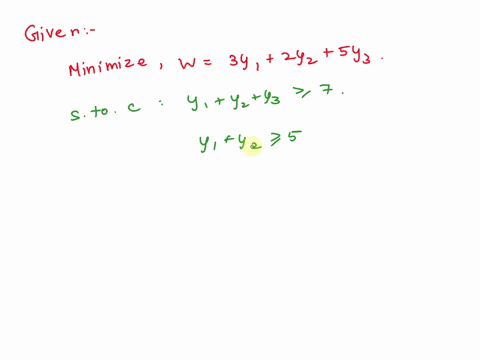 Given:-
Minimize, W = 3y₁ + 2y₂ + 5y₃.
s. to. c : y₁ + y₂ + y₃ ≥ 7.
y₁ + y₂ ≥ 5